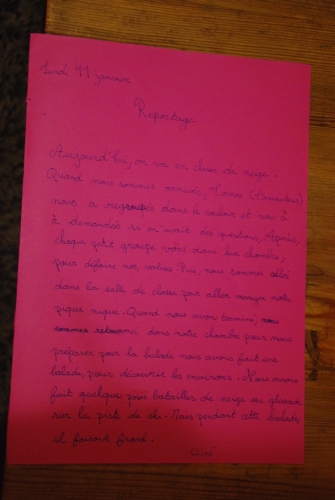 Lundi 11 janvier
Reportage
Aujourd'hui, on va en classe de neige.
Quand nous sommes arrivés, (l'animateur)
nous a regroupés dans le couloir et nous à
à demandés si on avait des questions. Après,
chaque petit groupe vont dans leur chambre,
pour défaire nos valises. Puis, nous sommes allés
dans la salle de classe pour aller manger notre
pique nique. Quand nous avons terminé, nous
sommes retournés dans notre chambre pour nous
préparer pour la balade nous avons fait une
balade pour découvrir les environs. Nous avons
fait quelque petit batailles de neige ou glissade
sur la piste de ski. Mais pendant cette balade,
il faisait froid.